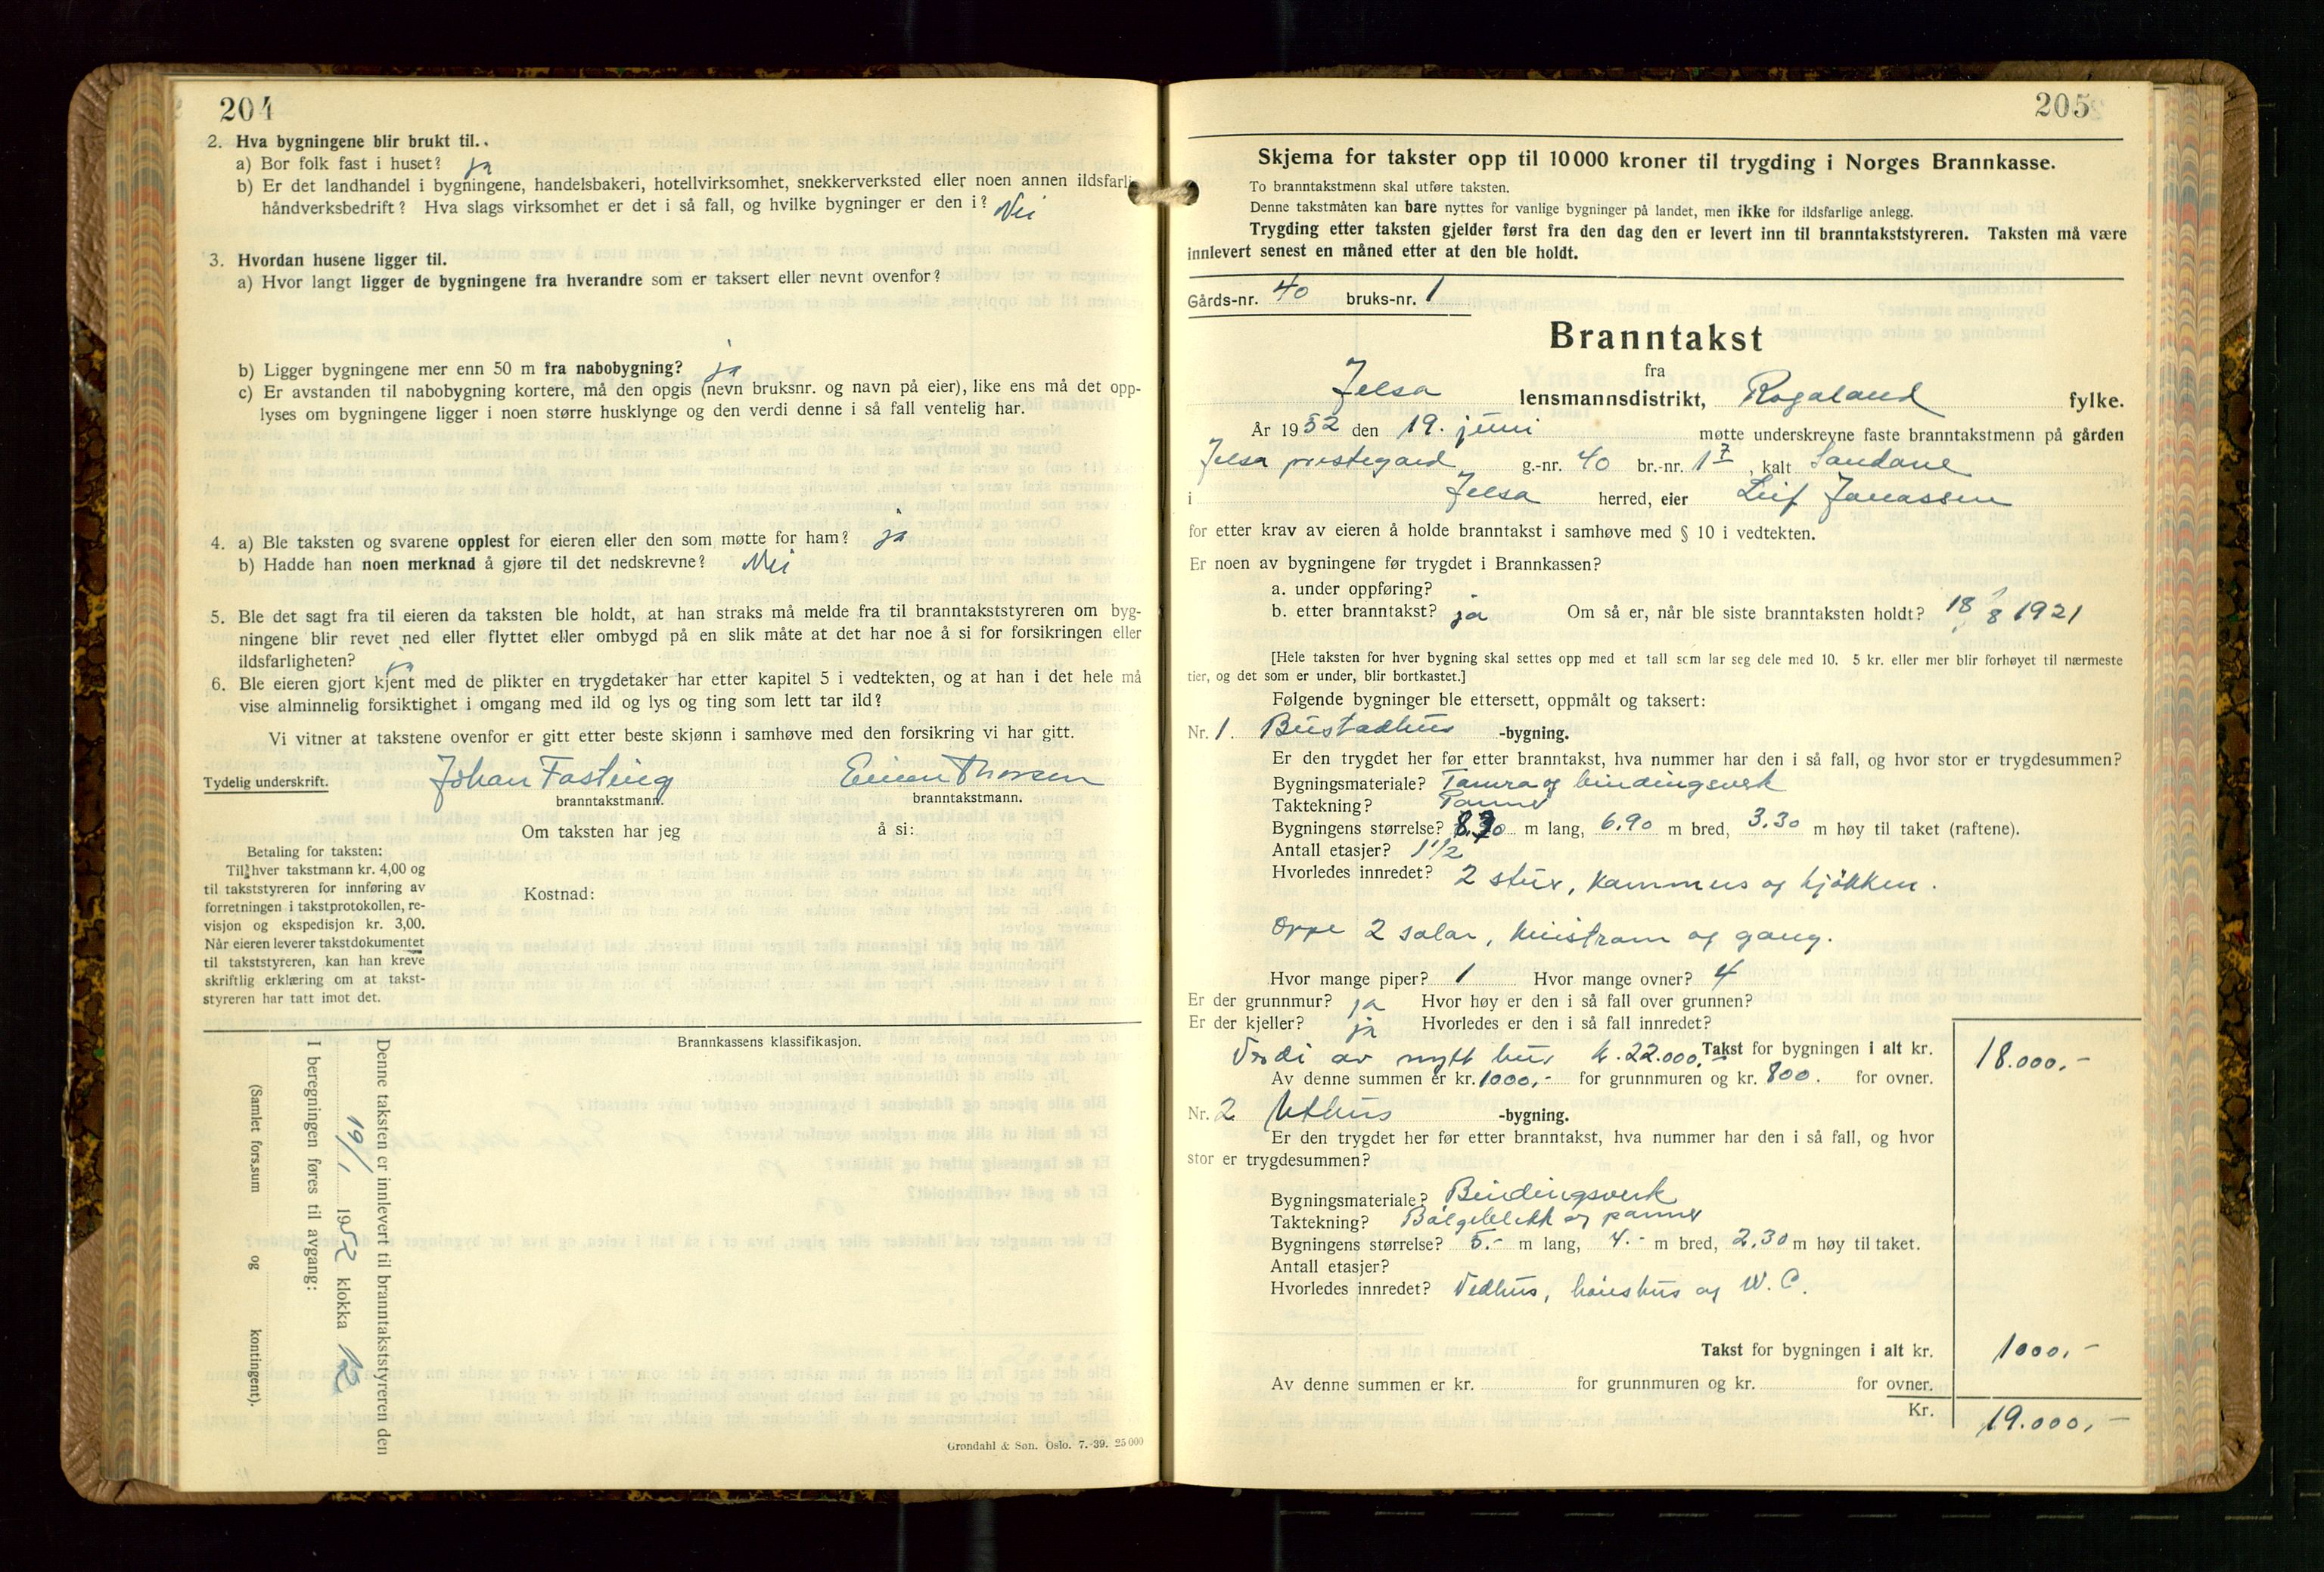 204
2. Hva bygningene blir brukt til.
a) Bor folk fast i huset? ja
b) Er det landhandel i bygningene, handelsbakeri, hotellvirksomhet, snekkerverksted eller noen annen ildsfarlig
håndverksbedrift? Hva slags virksomhet er det i så fall, og hvilke bygninger er den i? Nei
3. Hvordan husene ligger til.
a) Hvor langt ligger de bygningene fra hverandre som er taksert eller nevnt ovenfor?
b) Ligger bygningene mer enn 50 m fra nabobygning? ja
c) Er avstanden til nabobygning kortere, må den opgis (nevn bruksnr. og navn på eier), like ens må det opp-
lyses om bygningene ligger i noen større husklynge og den verdi denne i så fall ventelig har.
4. a) Ble taksten og svarene opplest for eieren eller den som møtte for ham? ja
b) Hadde han noen merknad å gjøre til det nedskrevne? Nei
5. Ble det sagt fra til eieren da taksten ble holdt, at han straks må melde fra til branntakststyreren om byg-
ningene blir revet ned eller flyttet eller ombygd på en slik måte at det har noe å si for forsikringen eller
ildsfarligheten? ja
6. Ble eieren gjort kjent med de plikter en trygdetaker har etter kapitel 5 i vedtekten, og at han i det hele må
vise alminnelig forsiktighet i omgang med ild og lys og ting som lett tar ild?
Vi vitner at takstene ovenfor er gitt etter beste skjønn i samhøve med den forsikring vi har gitt.
Tydelig underskrift. Johan Fasting Einar Thorsen
branntakstmann. branntakstmann.
Om taksten har jeg å si:
Betaling for taksten:
Til hver takstmann kr. 4,00 og
til takststyreren for innføring av
forretningen i takstprotokollen, re-
visjon og ekspedisjon kr. 3,00.
Når eieren leverer takstdokumentet
til takststyreren, kan han kreve
skriftlig erklæring om at takst-
styreren har tatt imot det.
Kostnad:
Brannkassens klassifikasjon.
Denne taksten er innlevert til branntakststyreren den
19/ 1952 klokka 12
I beregningen føres til avgang:
(Samlet fors.sum og kontingent).
Grøndahl & Søn. Oslo. 7.-39. 25 000
205
Skjema for takster opp til 10 000 kroner til trygding i Norges Brannkasse.
To branntakstmenn skal utføre taksten.
Denne takstmåten kan bare nyttes for vanlige bygninger på landet, men ikke for ildsfarlige anlegg.
Trygding etter taksten gjelder først fra den dag den er levert inn til branntakststyreren. Taksten må være
innlevert senest en måned etter at den ble holdt.
Gårds-nr. 40 bruks-nr. 1
Branntakst
fra
Jelsa lensmannsdistrikt, Rogaland fylke.
År 1952 den 19. juni møtte underskrevne faste branntakstmenn på gården
Jelsa prestegard g.-nr. 40 br.-nr. 1 7, kalt Sandane
i Jelsa herred, eier Leif Jonassen
for etter krav av eieren å holde branntakst i samhøve med § 10 i vedtekten.
Er noen av bygningene før trygdet i Brannkassen?
a. under oppføring?
b. etter branntakst? ja Om så er, når ble siste branntaksten holdt? 18/8 1921
[Hele taksten for hver bygning skal settes opp med et tall som lar seg dele med 10. 5 kr. eller mer blir forhøyet til nærmeste
tier, og det som er under, blir bortkastet.]
Følgende bygninger ble ettersett, oppmålt og taksert:
Nr. 1. Bustadhus -bygning.
Er den trygdet her før etter branntakst, hva nummer har den i så fall, og hvor stor er trygdesummen?
Bygningsmateriale? Tømra og bindingsverk
Taktekning? Panner
Bygningens størrelse? 8.30 m lang, 6.90 m bred, 3.30 m høy til taket (raftene).
Antall etasjer? 1 1/2
Hvorledes innredet? 2 stuer, kammers og kjøkken.
Oppe 2 salar, kvistrom og gang.
Hvor mange piper? 1 Hvor mange ovner? 4
Er der grunnmur? ja Hvor høy er den i så fall over grunnen?
Er der kjeller? ja Hvorledes er den i så fall innredet?
Verdi av nytt hus kr. 22.000,- Takst for bygningen i alt kr. 18.000,-
Av denne summen er kr. 1000,- for grunnmuren og kr. 800. for ovner.
Nr. 2 Uthus -bygning.
Er den trygdet her før etter branntakst, hva nummer har den i så fall, og hvor
stor er trygdesummen?
Bygningsmateriale? Bindingsverk
Taktekning? Bølgeblekk og panner
Bygningens størrelse? 5.- m lang, 4.- m bred, 2.30 m høy til taket.
Antall etasjer?
Hvorledes innredet? Vedhus, hønshus og W.C.
Takst for bygningen i alt kr. 1000,-
Av denne summen er kr. for grunnmuren og kr. for ovner.
Kr. 19.000,-